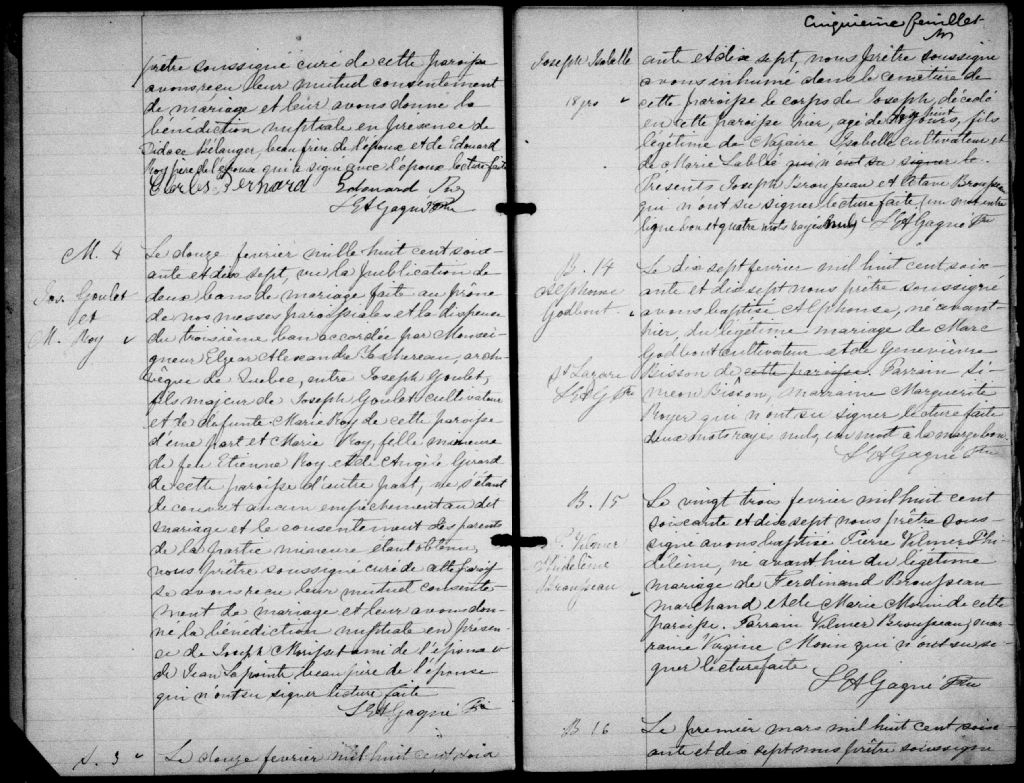 prêtre soussigné curé de cette paroisse
avons reçu leur mutuel consentement
de mariage et leur avons donné la
bénédiction nuptiale en présense de
Bélanger, beau frère de l'époux et de Edouard
Roy père de l'épouse qui a signé avec l'époux lecture faite
Charles Bernard Edouard Roy
L E A Gagné Ptre
M. 4
Jos. Goulet
et
M. Roy
Le douze fevrier mille huit cent soix-
ante et dix sept, vu la publication de
deux bans de mariage faite au prône
de nos messes paroissiales et la dispense
du troisième ban accordée par Monsei-
gneur Elzear Alexandre Taschereau, arch-
evêque de Quebec, entre Joseph Goulet,
fils majeur de Joseph Goulet cultivateur
et de defunte Marie Roy de cette paroisse
d'une part et Marie Roy, fille mineure
de feu Etienne Roy et de Angèle Girard
de cette paroisse d'autre part, ne s'étant
decouvert aucun empêchement au dit
mariage et le consentement des parents
de la partie mineure étant obtenu,
nous prêtre soussigné curé de cette parois-
se avons reçu leur mutuel consente-
ment de mariage et leur avons don-
né la bénédiction nuptiale en présen-
ce de Joseph ami de l'époux et
de Jean Lapointe, beau père de l'épouse
qui n'ont su signer lecture faite
L E A Gagné Ptre
S. 3
Le douze fevrier mil huit cent soix
Cinquieme feuillet
Joseph Isabelle
18 jrs
ante et dix sept, nous prêtre soussigné
avons inhumé dans le cemetière de
cette paroisse le corps de Joseph, décédé
en cette paroisse hier, agé de dix huit jours, fils
légitime de Nazaire Isabelle cultivateur et
de Marie Lablée qui n'ont su signer le.
Présents Joseph Brousseau et Octave Brousseau
qui n'ont su signer lecture faite (un mot entre
ligne bon et quatre mots rayés nuls) L E A Gagné Ptre
B. 14
Alphonse
Godbout
St Lazare
L E A G Ptre
Le dix sept fevrier mil huit cent soix-
ante et dix sept nous prêtre soussigné
avons baptisé Alphonse, né avant-
hier, du légetime mariage de Marc
Godbout cultivateur et de Geneviève
Bisson de cette paroisse. Parrain Si-
meon Bisson, marraine Marguerite
Royer qui n'ont su signer lecture faite
deux mots rayé nuls, un mot à la marge bon.
L E A Gagné Ptre
B. 15
P. Vilmer
Philéleine
Brousseau
Le vingt trois fevrier mil huit cent
soixante et dix sept nous prêtre sous-
signé avons baptisé Pierre Vilmer Phi
léleine, né avant hier du légetime
mariage de Ferdinand Brousseau
marchand et de Marie Morin de cette
paroisse. Parrain Vilmer Brousseau, mar-
raine Virginie Morin qui n'ont su si-
gner lecture faite
L E A Gagné Ptre
B 16
Le premier mars mil huit cent soix-
ante et dix sept nous prêtre soussigné